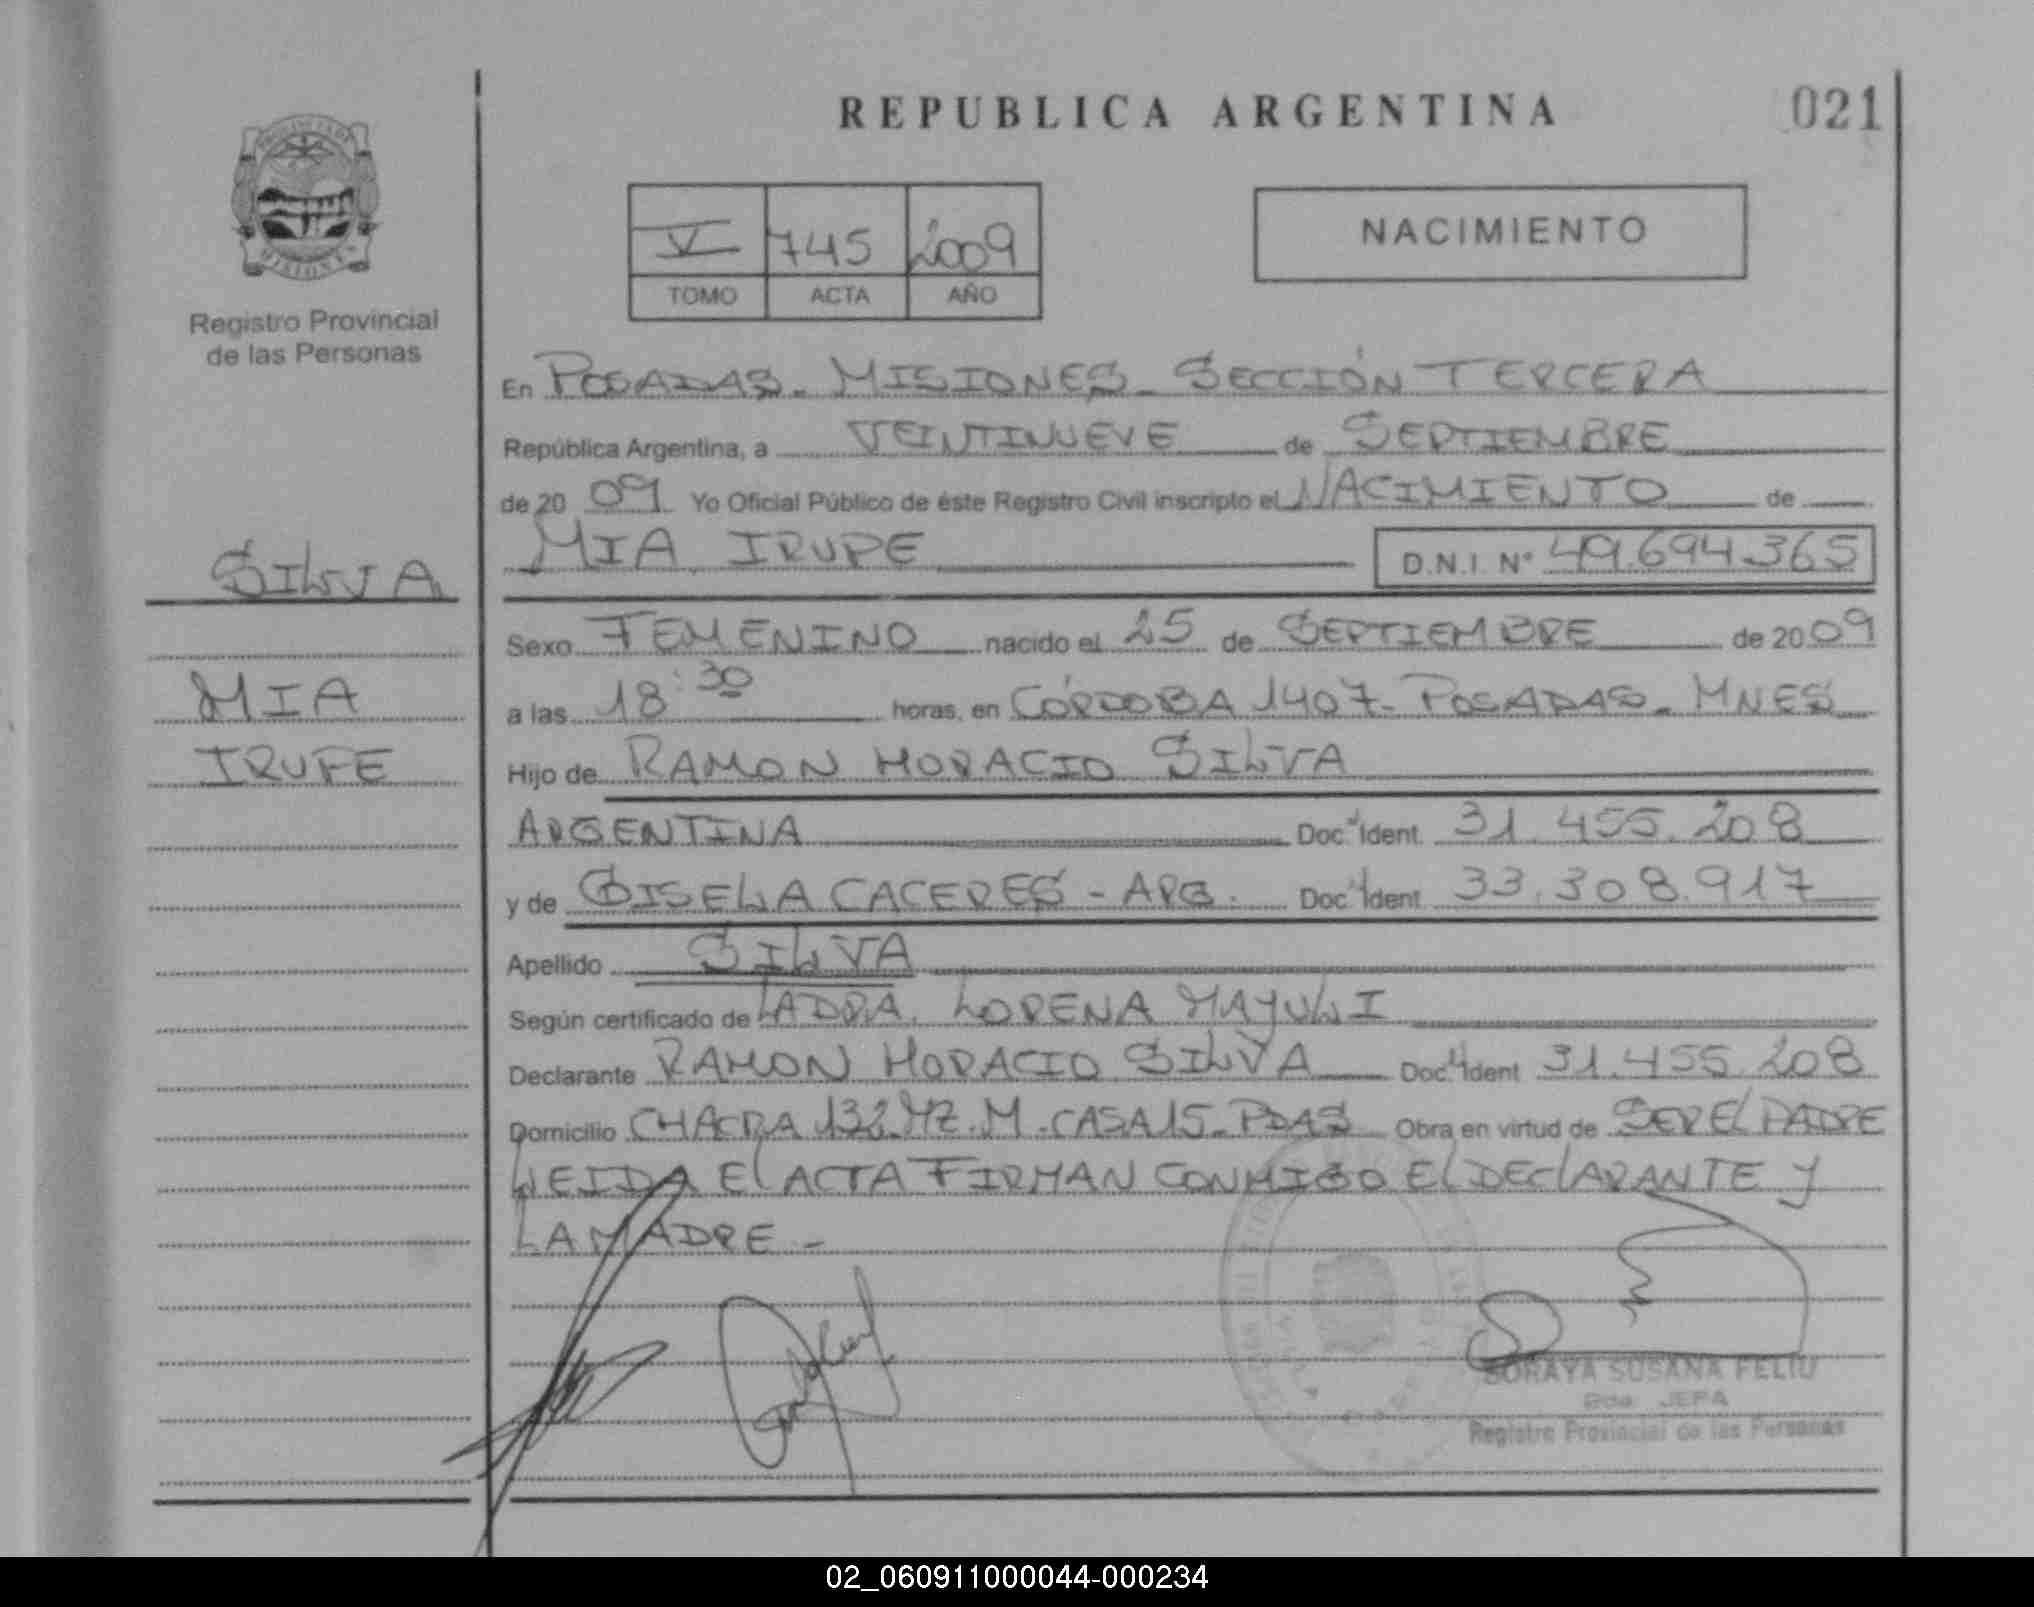 REPUBLICA ARGENTINA
021
PROVINCIA DE
MISIONES
Registro Provincial
de las Personas
V 745 2009
TOMO ACTA AÑO
NACIMIENTO
En POSADAS - MISIONES - SECCIÓN TERCERA
República Argentina, a VEINTINUEVE de SEPTIEMBRE
de 2009 Yo Oficial Público de éste Registro Civil inscripto el NACIMIENTO de
MIA IRUPE D.N.I. Nº 49.694.365
SILVA
MIA
IRUPE
Sexo FEMENINO nacido el 25 de SEPTIEMBRE de 2009
a las 18:30 horas, en CÓRDOBA 1407 - POSADAS - MNES
Hijo de RAMON HORACIO SILVA
ARGENTINA Doc. Ident. 31.455.208
y de GISELA CACERES - ARG. Doc. Ident. 33.308.917
Apellido SILVA
Según certificado de LA DRA. LORENA MAYULI
Declarante RAMON HORACIO SILVA Doc. Ident 31.455.208
Domicilio CHACRA 132 MZ. M. CASA 15 - PDAS Obra en virtud de SER EL PADRE
LEIDA EL ACTA FIRMAN CONMIGO EL DECLARANTE Y
LA MADRE -
SORAYA SUSANA FELIU
JEFA
Registro Provincial de las Personas
02_060911000044-000234